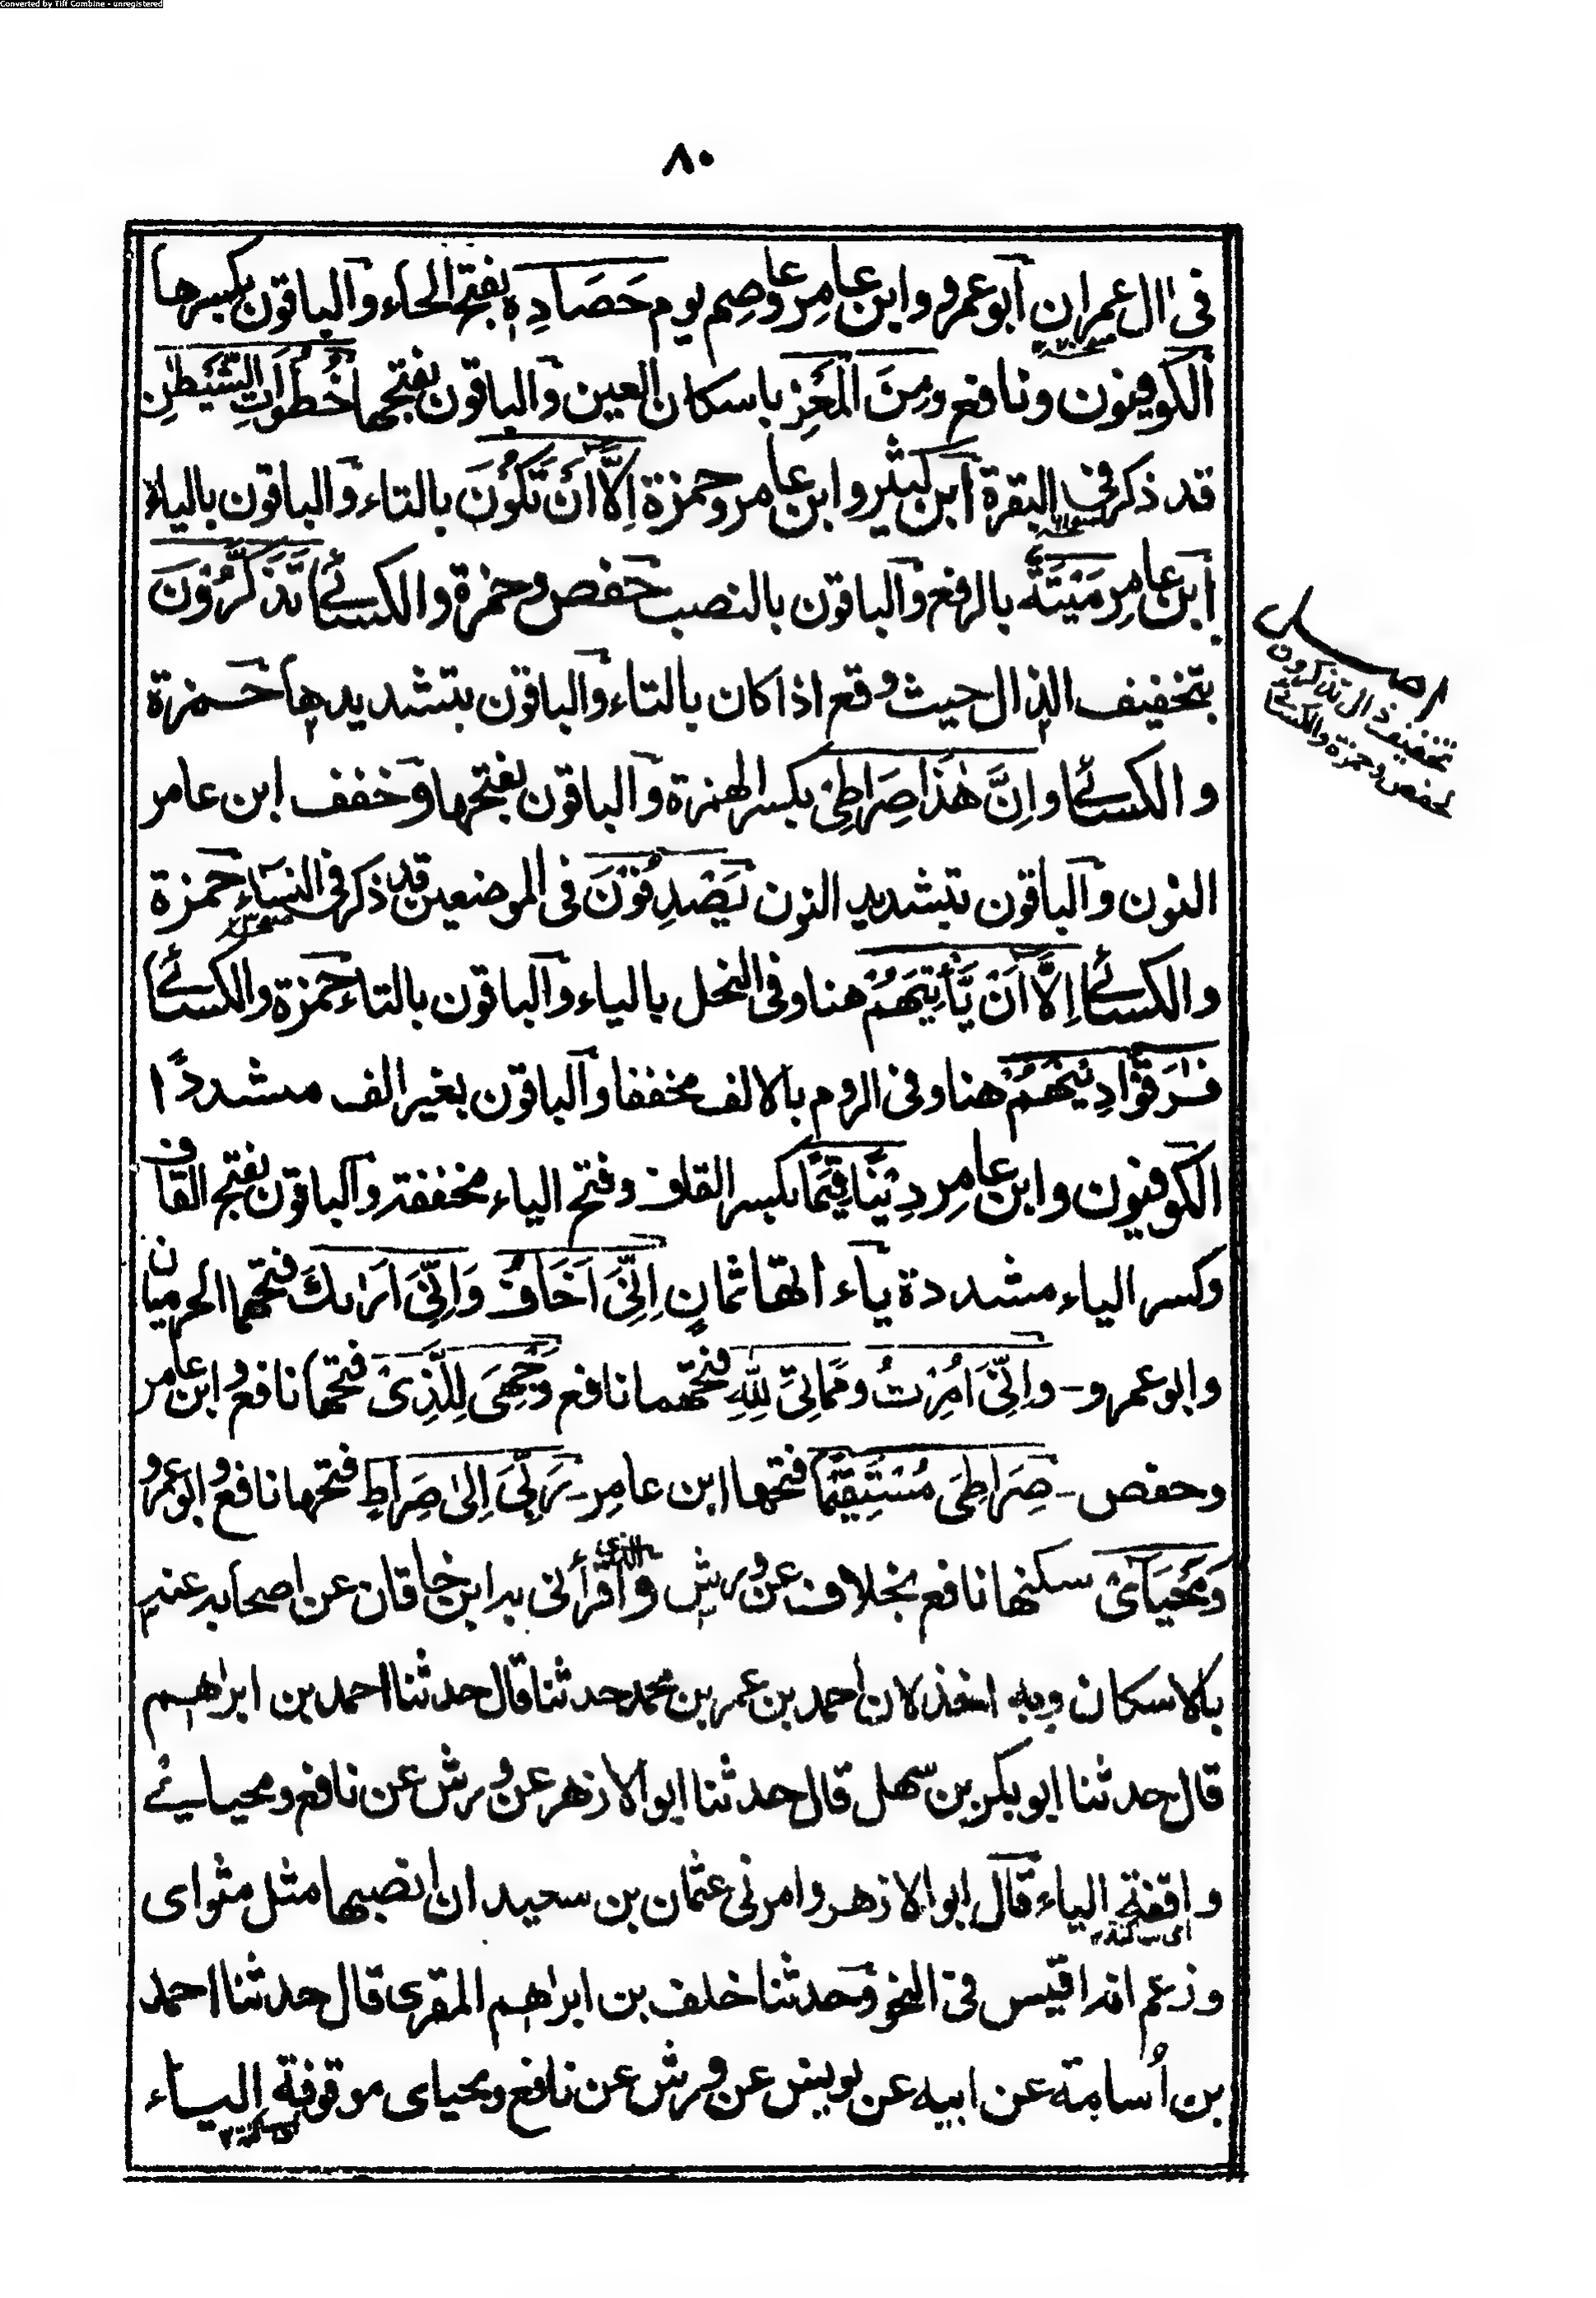 Converted by Tiff Combine - unregistered
٨٠
فى اٰل عمران اَبو عمرو وابن عامِر وعاصِم يوم حَصَادِهٖ بفتح الحاء وَالباقون بكسرها
اَلكوفيون ونافع ومِنَ الْمَعْزِ باسكان العين وَالباقون بفتحها خُطُوٰاتِ الشَّيْطٰنِ
قد ذكر فى البقرة اَبن كثير وابن عامر وحمزة اِلَّا اَنْ تَكُوْنَ بالتاء وَالباقون بالياء
اَبن عامِر مَيْتَةٌ بالرفع وَالباقون بالنصب حَفص وحمزة والكسائے تَذَكَّرُوْنَ
بتخفيف الذال حيث وقع اذا كان بالتاء وَالباقون بتشديدها حَمزة
والكسائے وَاِنَّ هٰذَا صِرَاطِىْ بكسر الهمزة وَالباقون بفتحها وَخفف ابن عامر
النون وَالباقون بتشديد النون يَصْدِفُوْنَ فى الموضعين قد ذكر فى النساء حَمزة
والكسائے اِلَّا اَنْ يَّأْتِيَهُمْ هنا وفى النحل بالياء وَالباقون بالتاء حَمزة والكسائے
فَرَقُوْا دِيْنَهُمْ هنا وفى الروم بالالف مخففا وَالباقون بغير الف مشددًا
اَلكوفيون وابن عامِر دِيْنًا قِيَمًا بكسر القاف وفتح الياء مخففة وَالباقون بفتح القاف
وكسر الياء مشددة ياَءاتها ثمانٍ اِنِّىْ اَخَافُ وَاِنِّىْ اَرٰىكَ فتحهما الحرميان
وابو عمرو - وَاِنِّىْ اُمِرْتُ وَمَمَاتِىْ لِلّٰهِ فتحهما نافع وَجْهِىَ لِلَّذِىْ فتحها نافع وابن عامر
وحفص - صِرَاطِىْ مُسْتَقِيْمًا فتحها ابن عامِر - رَبِّىْ اِلىٰ صِرَاطٍ فتحها نافع وابو عمرو
وَمَحْيَاىْ سكنها نافع بخلاف عن ورش والذى اقرأنى به ابن خاقان عن اصحابه عنه
بالاسكان وبه اٰخذ لان احمد بن عمر بن محمد حدثنا قال حدثنا احمد بن ابراهيم
قال حدثنا ابو بكر بن سهل قال حدثنا ابو الازهر عن ورش عن نافع ومحيائے
واقفة الياء قَال ابو الازهر وامرنى عثمان بن سعيد ان انصبها مثل مثواى
اى ساكنة
وزعم انه اقيس فى النحو وَحدثنا خلف بن ابراهيم المقرى قال حدثنا احمد
بن اُسامة عن ابيه عن يونس عن ورش عن نافع ومحياى موقوفة الياء
تخفيف ذال تذكرون
لحفص وحمزة والكسائے